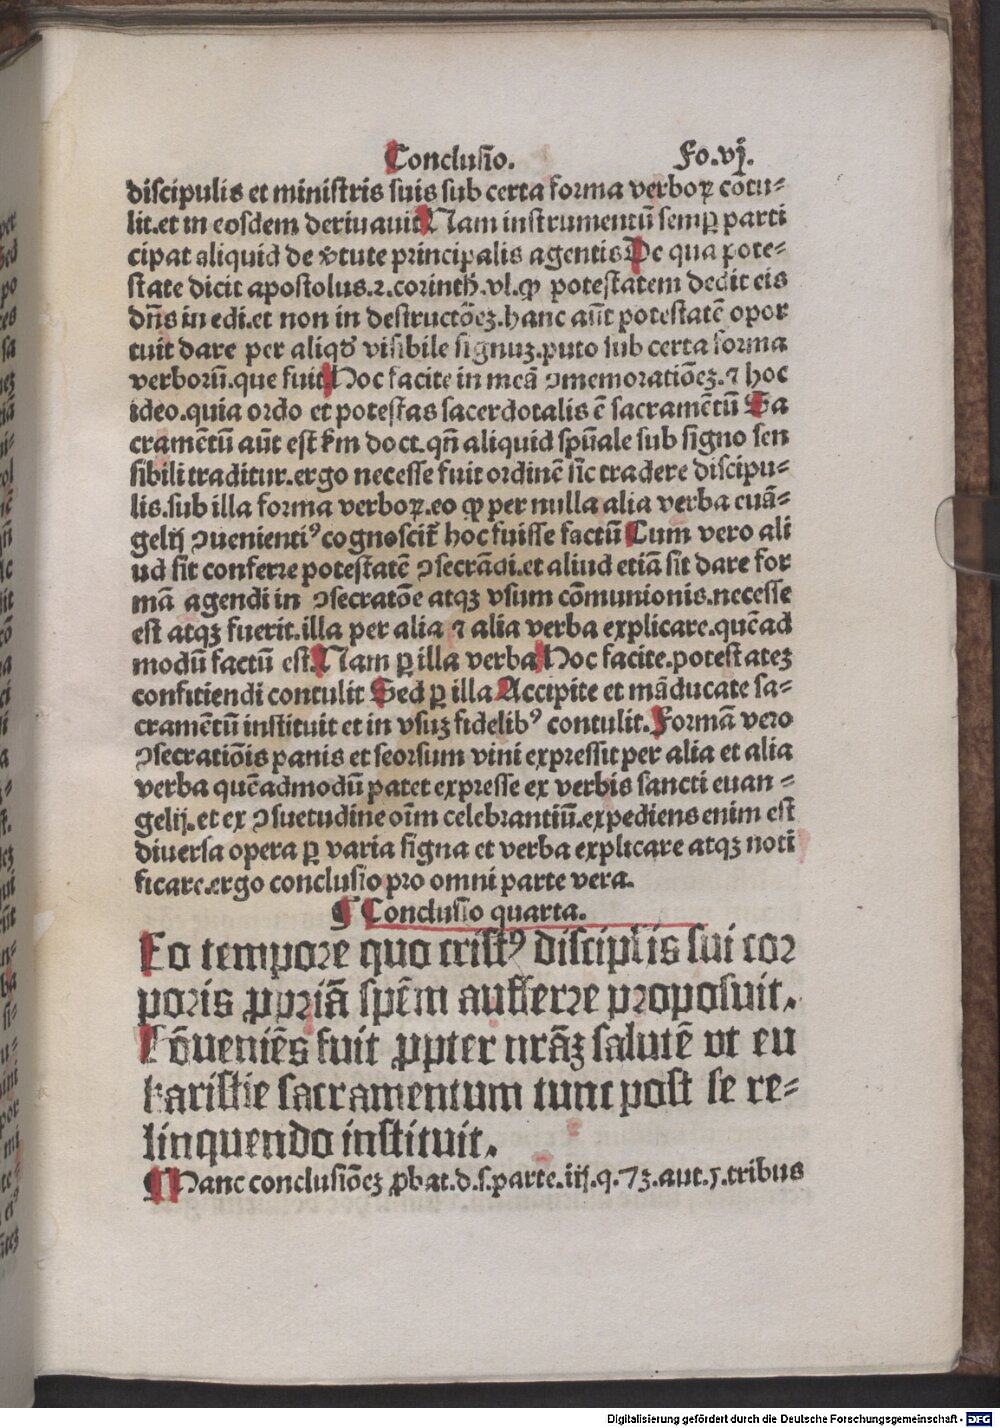 Conclusio. Fo.vj.
discipulis et ministris suis sub certa forma verboꝝ cōtu⸗
lit.et in eosdem deriuauit Nam instrumentū semꝑ parti
cipat aliquid de v̓tute principalis agentis De qua pote⸗
state dicit apostolus.2.corinth̄.vl.ꝙ potestatem dedit eis
dn̄s in edi.et non in destructōeꝫ.hanc aūt potestatē opor
tuit dare per aliqd̓ visibile signuꝫ.puto sub certa forma
verborū.que fuit Hoc facite in meā ꝯmemoratiōeꝫ.⁊ hoc
ideo.quia ordo et potestas sacerdotalis ē sacramētū Sa
cramētū aūt est km̄ doct.qn̄ aliquid spūale sub signo sen
sibili traditur.ergo necesse fuit ordinē sic̄ tradere discipu⸗
lis.sub illa forma verboꝝ.eo ꝙ per nulla alia verba euā⸗
gelij ꝯuenientiꝰ cognoscit̄ hoc fuisse factū Cum vero ali
ud sit conferre potestatē ꝯsecrādi.et aliud etiā sit dare for
mā agendi in ꝯsecratōe atqꝫ vsum cōmunionis.necesse
est atqꝫ fuerit.illa per alia ⁊ alia verba explicare.quēad
modū factū est. Nam ꝑ illa verba Hoc facite.potestateꝫ
conficiendi contulit Sed ꝑ illa Accipite et māducate sa⸗
cramētū instituit et in vsuꝫ fidelibꝰ contulit. Formā vero
ꝯsecratiōis panis et seorsum vini expressit per alia et alia
verba quēadmodū patet expresse ex verbis sancti euan⸗
gelij.et ex ꝯsuetudine oīm celebrantiū.expediens enim est
diuersa opera ꝑ varia signa et verba explicare atqꝫ noti
ficare.ergo conclusio pro omni parte vera.
¶ Conclusio quarta.
Eo tempore quo cristꝰ disciplis sui cor
poris ꝓpriā spēm aufferre proposuit.
Cōueniēs fuit ꝓpter nrāꝫ salutē vt eu
karistie sacramentum tunc post se re⸗
linquendo instituit.
¶ Hanc conclusiōeꝫ ꝓbat.d.s.parte.iij.q.73.aut.5.tribus
Digitalisierung gefördert durch die Deutsche Forschungsgemeinschaft - DFG